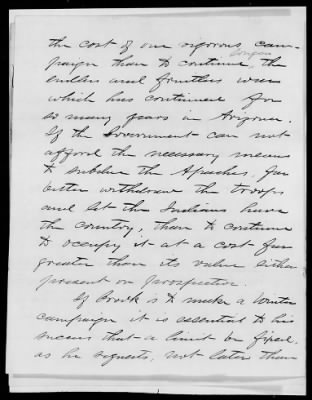 the cost of one vigorous cam-
paign than to continue, the
longer
endless and fruitless war
which has continued for
so many years in Arizona.
If the Government can not
afford the necessary means
to subdue the Apaches, far
better withdraw the troops
and let the Indians have
the country, than to continue
to occupy it at a cost far
greater than its value either
present or prospective.
If Crook is to make a Winter
campaign it is essential to his
success that a limit be fixed,
as he requests, not later than